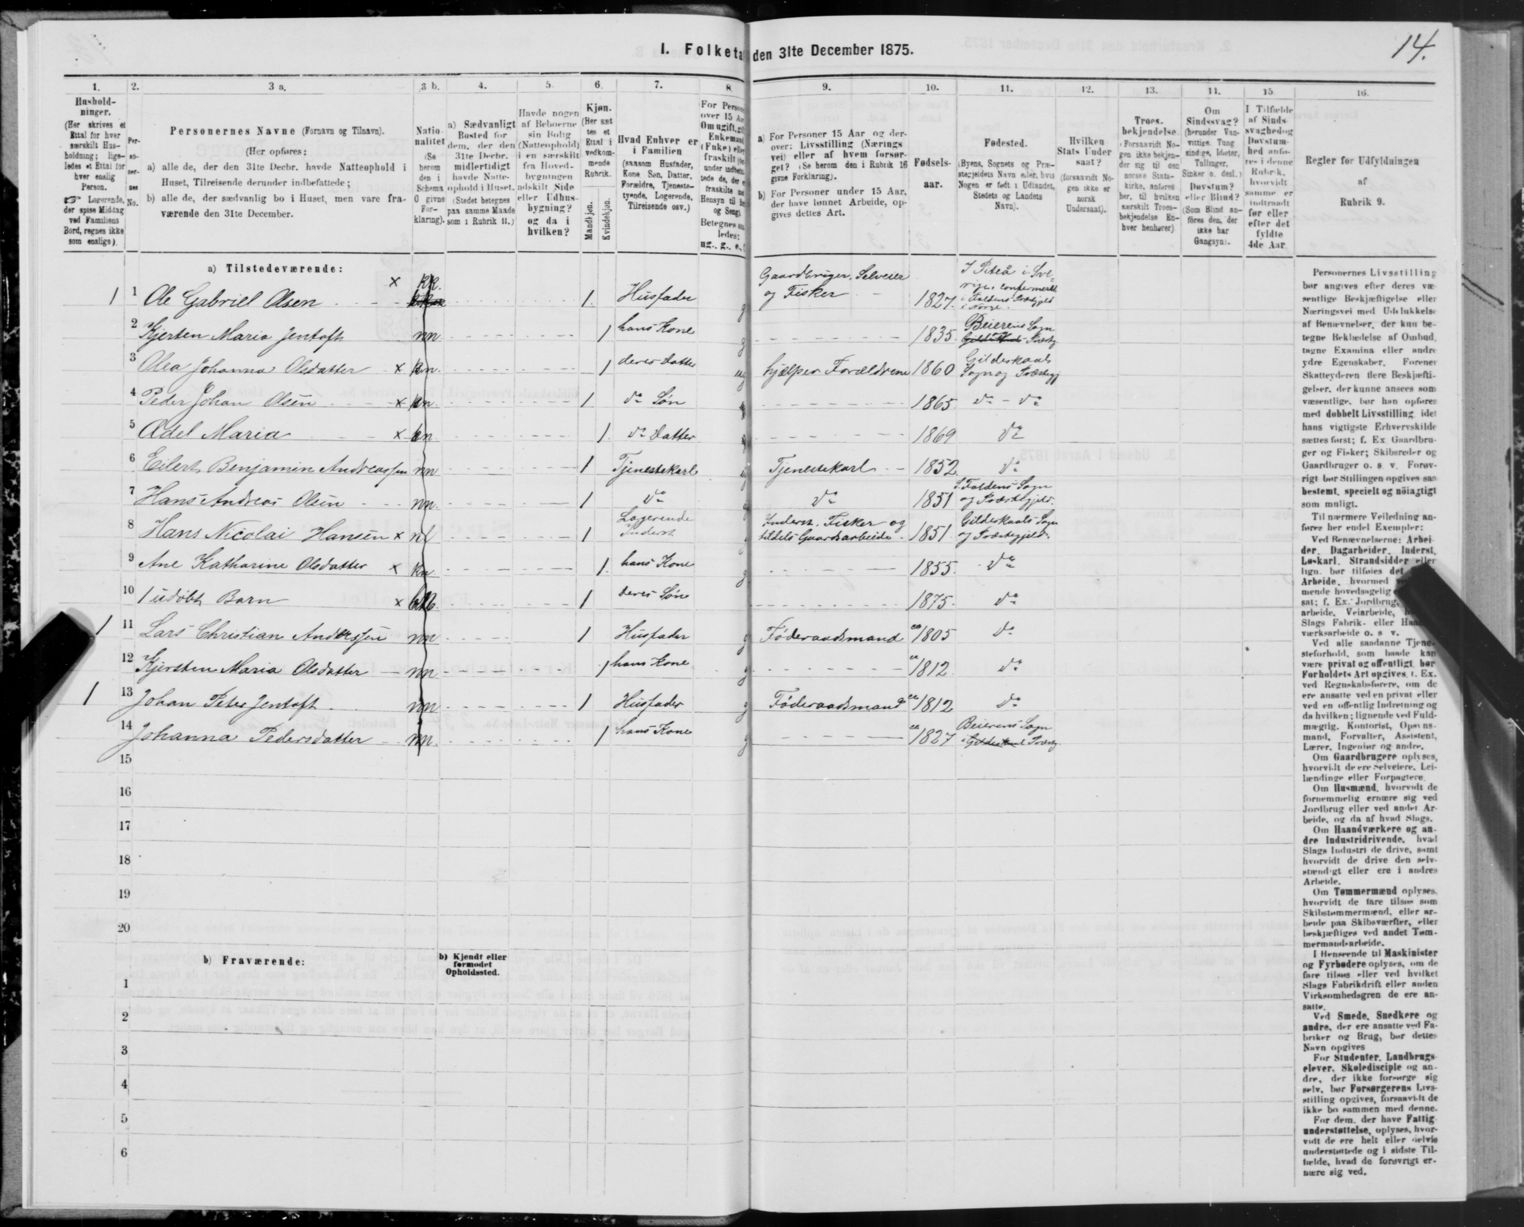 14.
I. Folketa den 31te December 1875.
1. 2. 3 a. 3 b. 4. 5. 6. 7. 8. 9. 10. 11. 12. 13. 14. 15 16.
Hushold-
ninger.
(Her skrives et
Ettal for hver
særskilt Hus-
holdning; lige-
ledes et Ettal for
hver enslig
Person.
Logerende,
der spise Middag
ved Familiens
Bord, regnes ikke
som enslige).
Per-
so-
ner-
nes
No.
Personernes Navne (Fornavn og Tilnavn).
(Her opføres:
a) alle de, der den 31te Decbr. havde Natteophold i
Huset, Tilreisende derunder indbefattede;
b) alle de, der sædvanlig bo i Huset, men vare fra-
værende den 31te December.
Natio-
nalitet
(Se
herom
den i
Schema
O givne
For-
klaring).
a) Sædvanligt
Bosted for
dem, der den
31te Decbr.
midlertidigt
havde Natte-
ophold i Huset.
(Stedet betegnes
paa samme Maade
som i Rubrik 11.)
Havde nogen
af Beboerne
sin Bolig
(Natteophold)
i en særskilt
fra Hoved-
bygningen
adskilt Side
eller Udhus-
bygning?
og da i
hvilken?
Kjøn.
(Her sæt
tes et
Ettal i
vedkom-
mende
Rubrik.
Mandkjøn.
Kvindekjøn.
Hvad Enhver er
i Familien
(saasom Husfader,
Kone Søn, Datter,
Forældre, Tjeneste-
tyende, Logerende,
Tilreisende osv.)
For Person
over 15 Aa
Om ugift, g
Enkemand
(Enke) elle
fraskilt
Betegnes
ledes:
ug., g., e.,
a) For Personer 15 Aar og der-
over: Livsstilling (Nærings
vei) eller af hvem forsør-
get? (Se herom den i Rubrik 16
givne Forklaring).
b) For Personer under 15 Aar,
der have lønnet Arbeide, op-
gives dettes Art.
Fødsels-
aar.
Fødested.
(Byens, Sognets og Præ-
stegjeldets Navn eller, hvis
Nogen er født i Udlandet,
Stedets og Landets
Navn).
Hvilken
Stats Under
saat?
(forsaavidt No-
gen ikke er
norsk
Undersaat).
Troes-
bekjendelse.
(Forsaavidt No-
gen ikke bekjen-
der sig til den
norske Stats-
kirke, anføres
her, til hvilken
særskilt Troes-
bekjendelse En-
hver henhører)
Om
Sindssvag?
(herunder Van-
vittige, Tung
sindige, Idioter,
Tullinger,
Sinker o. desl.)
Døvstum?
eller Blind?
(Som Blind an-
føres den, der
ikke har
Gangsyn).
I Tilfælde
af Sinds
svaghed og
Døvstum-
hed anfø-
res i denne
Rubrik,
hvorvidt
samme er
indtraadt
før eller
efter det
fyldte
4de Aar
Regler for Udfyldningen
af
Rubrik 9.
a) Tilstedeværende:
1 1 Ole Gabriel Olsen × 1. Husfader g Gaardbruger, Selveier og Fisker 1827.
2 Kjersten Maria Jentoft nn 1 hans Kone g 1835 Beierens Sogn
3 Olea Johanna Olsdatter × 1 deres Datter ug hjælper Forældrene 1860 Gildeskaals Sogn og Præstegj
4 Peder Johan Olsen × 1 do Søn 1865 do - do
5 Adel Maria × 1 do Datter 1869 do
6 Eilert Benjamin Andreassen nn 1 Tjenestekarl Tjenestekarl 1852 do
7 Hans Andreas Olsen nn. 1 do do 1851 Foldens Sogn og Præstegjeld.
8 Hans Nicolai Hansen × 1 Logerende Inderst Inderst, Fisker og tildels Gaardsarbeide 1851 Gildeskaals Sogn og Præstegjeld.
9 Ane Katharine Olsdatter × 1. hans Kone g 1855 do
10 1 udøbt Barn × 1 deres Søn 1875. do
1 11 Lars Christian Anderssen nn 1 Husfader g Føderaadsmand ca 1805 do
12 Kjersten Maria Olsdatter nn 1 hans Kone g ca 1812. do
1 13 Johan Peter Jentoft nn 1 Husfader g Føderaadsmand ca 1812 do
14 Johanna Pedersdatter nn. 1 hans Kone g ca 1827 Beierens Sogn i Gildeskaal Præstgj
15
16
17
18
19
20
b) Fraværende:
b) Kjendt eller
formodet
Opholdssted.
1
2
3
4
5
6
Personernes Livsstilling
bør angives efter deres væ-
sentlige Beskjæftigelse eller
Næringsvei med Udelukkelse
af Benævnelser, der kun be-
tegne Beklædelse af Ombud,
tagne Examina eller andre
ydre Egenskaber. Forener
Skatteyderen flere Beskjæfti-
gelser, der kunne ansees som
væsentlige, bør han opføres
med dobbelt Livsstilling, idet
hans vigtigste Erhvervskilde
sættes først; f. Ex. Gaardbru-
ger og Fisker; Skibsreder og
Gaardbruger o. s. v. Forøv-
rigt bør Stillingen opgives saa
bestemt, specielt og nøiagtigt
som muligt.
Til nærmere Veiledning an-
føres her endel Exempler:
Ved Benævnelserne: Arbei-
der, Dagarbeider, Inderst,
Løskarl, Strandsidder eller
lign. bør tilføies det
Arbeide, hvormed
mende hovedsagelig
sat; f. Ex. Jordbrug,
arbeide, Veiarbeide,
Slags Fabrik- eller
værksarbeide o. s. v.
Ved alle saadanne Tjene-
steforhold, som baade kan
være privat og offentligt, bør
Forholdets Art opgives, f. Ex.
ved Regnskabsførere, om de
ere ansatte ved en privat eller
ved en offentlig Indretning og
da hvilken; lignende ved Fuld-
mægtig, Kontorist, Opsyns-
mand, Forvalter, Assistent,
Lærer, Ingeniør og andre.
Om Gaardbrugere oplyses,
hvorvidt de ere Selveiere, Lei-
lændinge eller Forpagtere.
Om Husmænd, hvorvidt de
fornemmelig ernære sig ved
Jordbrug eller ved andet Ar-
beide, og da af hvad Slags.
Om Haandværkere og an-
dre Industridrivende, hvad
Slags Industri de drive, samt
hvorvidt de drive den selv-
stændigt eller ere i andres
Arbeide.
Om Tømmermænd oplyses,
hvorvidt de fare tilsøs som
Skibstømmermænd, eller ar-
beide paa Skibsværfter, eller
beskjæftiges ved andet Tøm-
mermandsarbeide.
I Henseende til Maskinister
og Fyrbødere oplyses, om de
fare tilsøs eller ved hvilket
Slags Fabrikdrift eller anden
Virksomhedsgren de ere an-
satte.
Ved Smede, Snedkere og
andre, der ere ansatte ved Fa-
briker og Brug, bør dettes
Navn opgives
For Studenter, Landbrugs-
elever, Skoledisciple og an-
dre, der ikke forsørge sig
selv, bør Forsørgerens Livs-
stilling opgives, forsaavidt de
ikke bo sammen med denne.
For dem, der have Fattig-
understøttelse, oplyses, hvor-
vidt de ere helt eller delvis
understøttede og i sidste Til-
fælde, hvad de forøvrigt er-
nære sig ved.